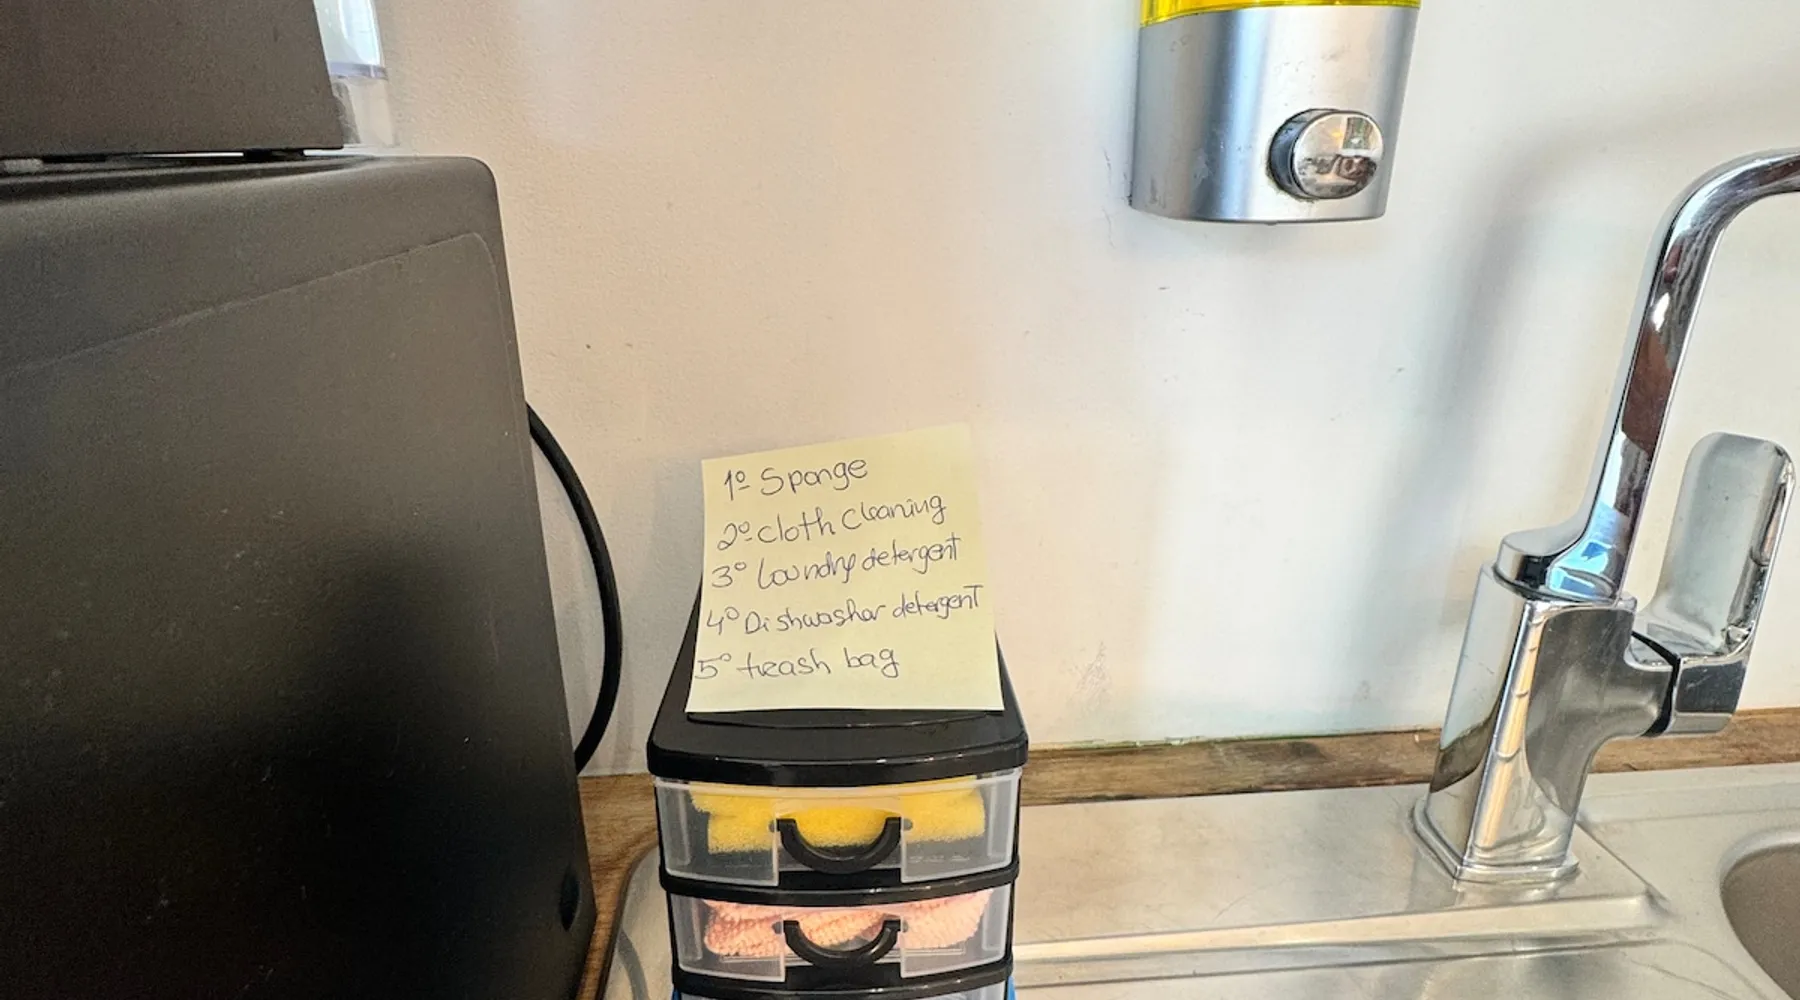 1º Sponge
2º cloth Cleaning
3º laundry detergent
4º Dishwasher detergent
5º trash bag